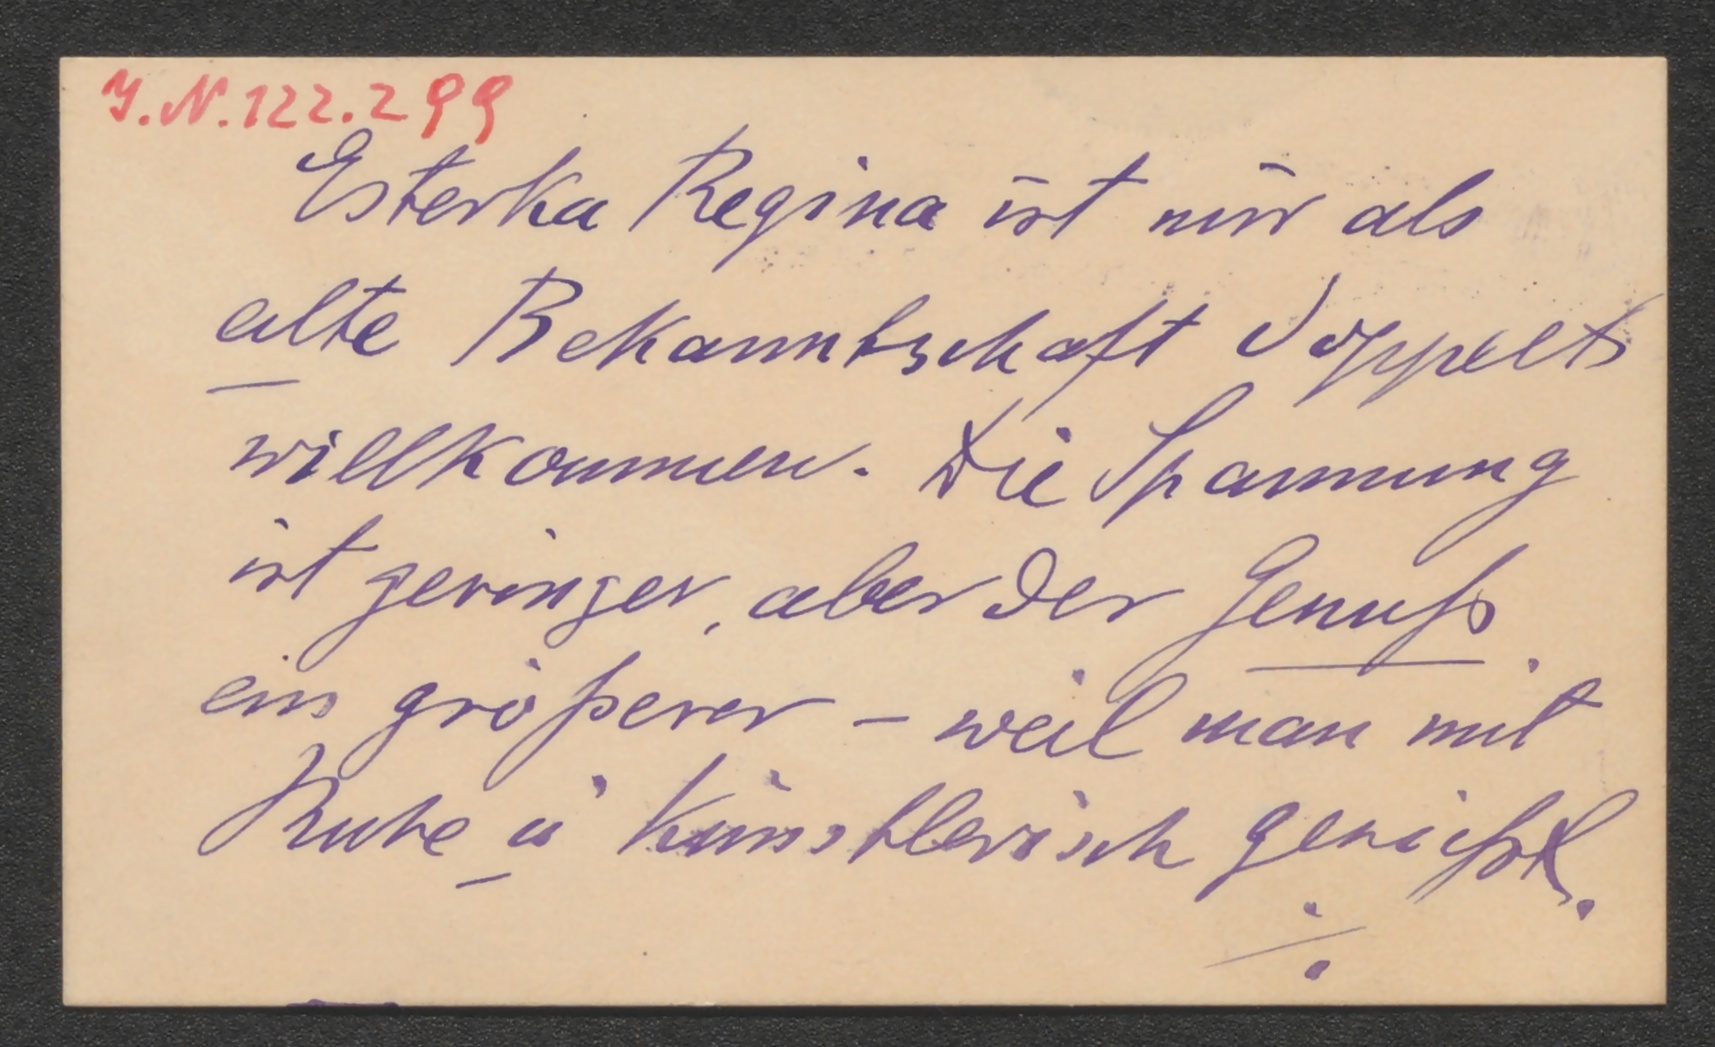 I.N. 122.299
Esterka Regina ist mir als
alte Bekanntschaft doppelt
willkommen. Die Spannung
ist geringer, aber der Genuß
ein größerer – weil man mit
Ruhe u künstlerisch genießt.